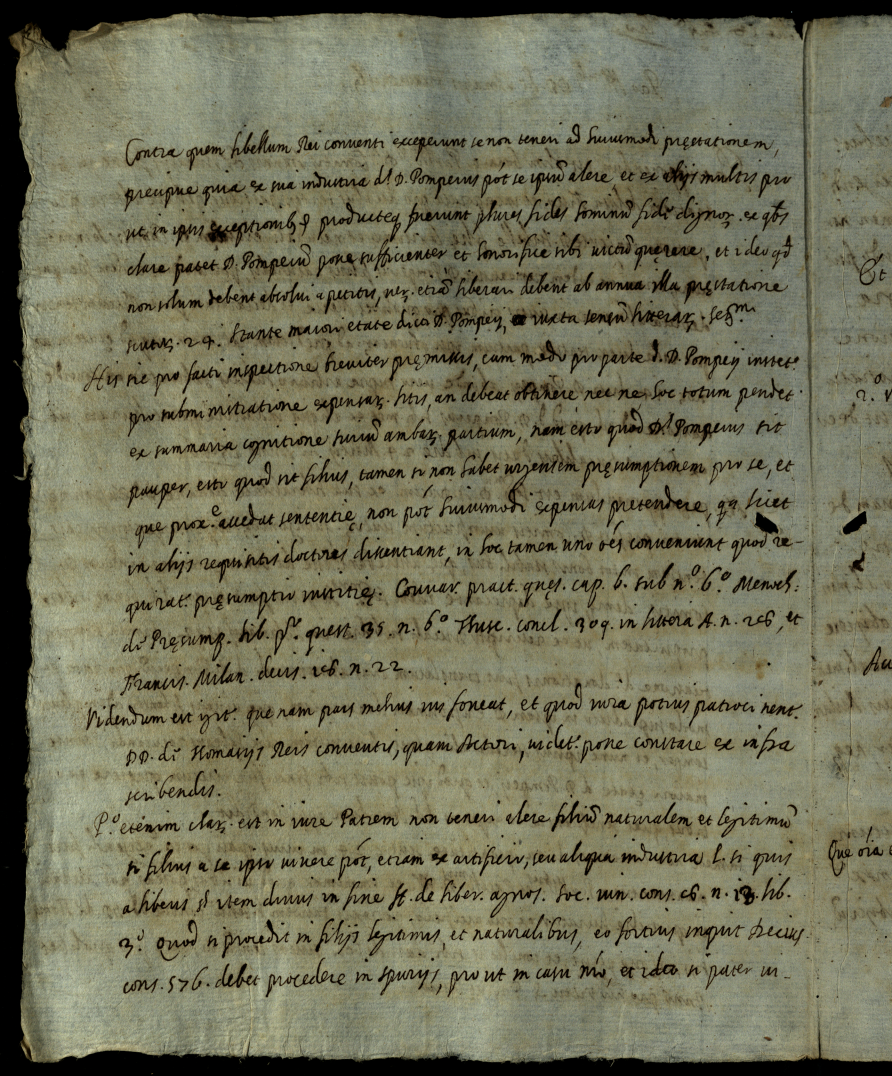 Contra quem libellum Rei conventi exceperunt se non teneri ad huiusmodi pręstationem,
precipue quia ex sua industria d.s D. Pompeius pót se ipsũ alere, et ex alijs multis pro
ut in ipsis exceptionib9 productęq fuerunt plures fides hominũ fidę dignoꝝ. ex qbs
clare patet D. Pompeiũ posse sufficienter et honorifice sibi victũ quęrere, et ideo qd
non solum debent absolui a petitis, veꝝ. etiã liberari debent ab annua illa pręstatione
scutoꝝ. 24. stante maiori etate dicti D. Pompeij, iuxta sensũ litteraꝝ.
His sic pro facti inspectione breviter pręmissis, cum modo pro parte d. D. Pompeij instet.r
pro subministratione expensaꝝ. litis, an debeat obtinere nec ne hoc totum pendet
ex summaria cognitione iuriũ ambaꝝ. partium, nam esto quod D.s Pompeius sit
pauper, esto quod sit filius, tamen si non habet urgentem pręsumptionem pro se, et
que prox.e accedat sententię, non pót huiusmodi expensas pretendere, qa licet
in alijs requisitis doctores dissentiant, in hoc tamen uno oẽs conveniunt quod re-
quirat. pręsumptio iustitię. Couvar. pract. quęs. cap. 6. sub n.o 6.o Menoch:
de Pręsump. lib. p.o quest. 35. n. 6.o Thusc. concl. 309. in littera A. n. 26, et
Francis. Milan. decis. 16. n. 22.
Videndum est igit.r que nam pars melius ius foveat, et quod iura potius patrocinent.r
DD. de Homarijs Reis conventis, quam Actori, videt.r posse constare ex infra
scribendis.
P.o etenim claꝝ. est in iure Patrem non teneri alere filiũ naturalem et legitimũ
si filius a se ipso vivere pót, etiam ex artificio, seu aliqua industria l. si quis
a liberis § item divus in fine ff. de liber. agnos. Soc. iun. cons. 6. n. 13. lib.
3.o Quod si procedit in filijs legitimis, et naturalibus, eo fortius inquit Decius
cons. 576. debet procedere in spurijs, pro ut in casu nr̃o, et ideo si pater vi-
Et
2.o
Au
Quę